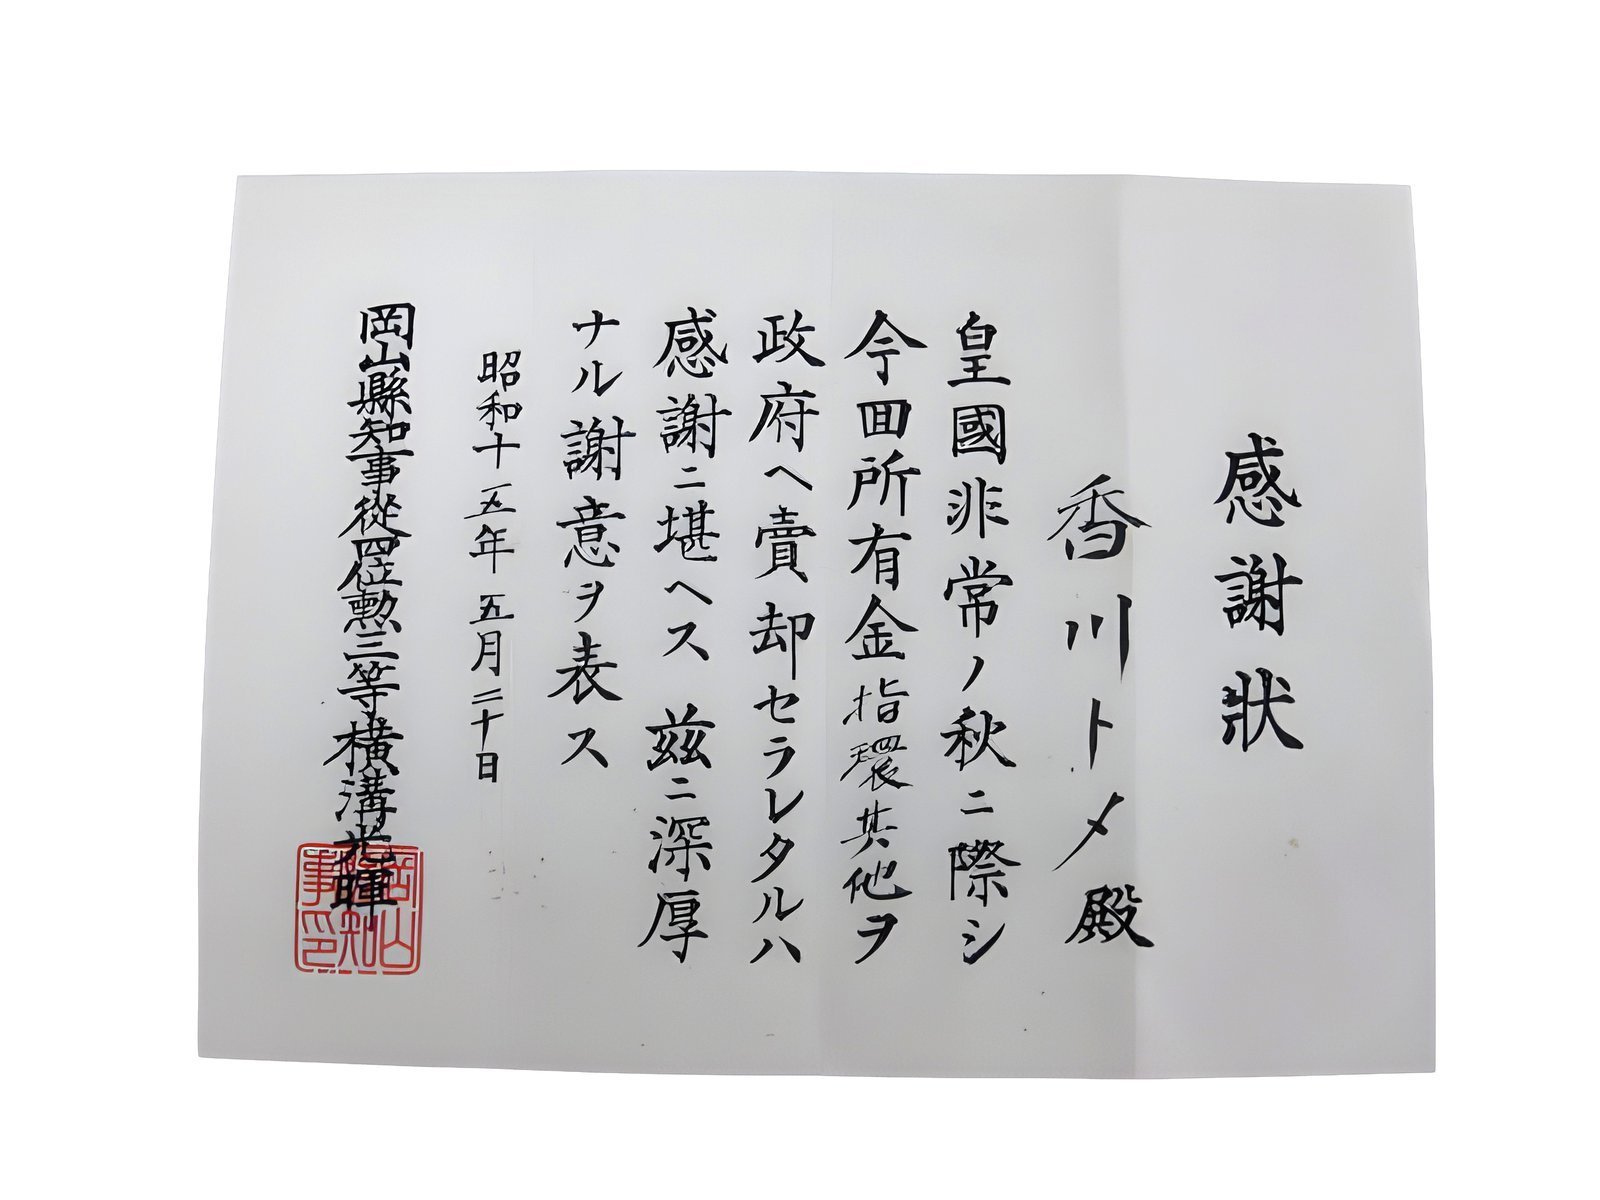 感謝狀
香川トメ殿
皇國非常ノ秋ニ際シ
今回所有金指環其他ヲ
政府ヘ賣却セラレタルハ
感謝ニ堪ヘス 茲ニ深厚
ナル謝意ヲ表ス
昭和十五年五月二十日
岡山縣知事從四位勲三等横溝光暉
岡山縣知事印